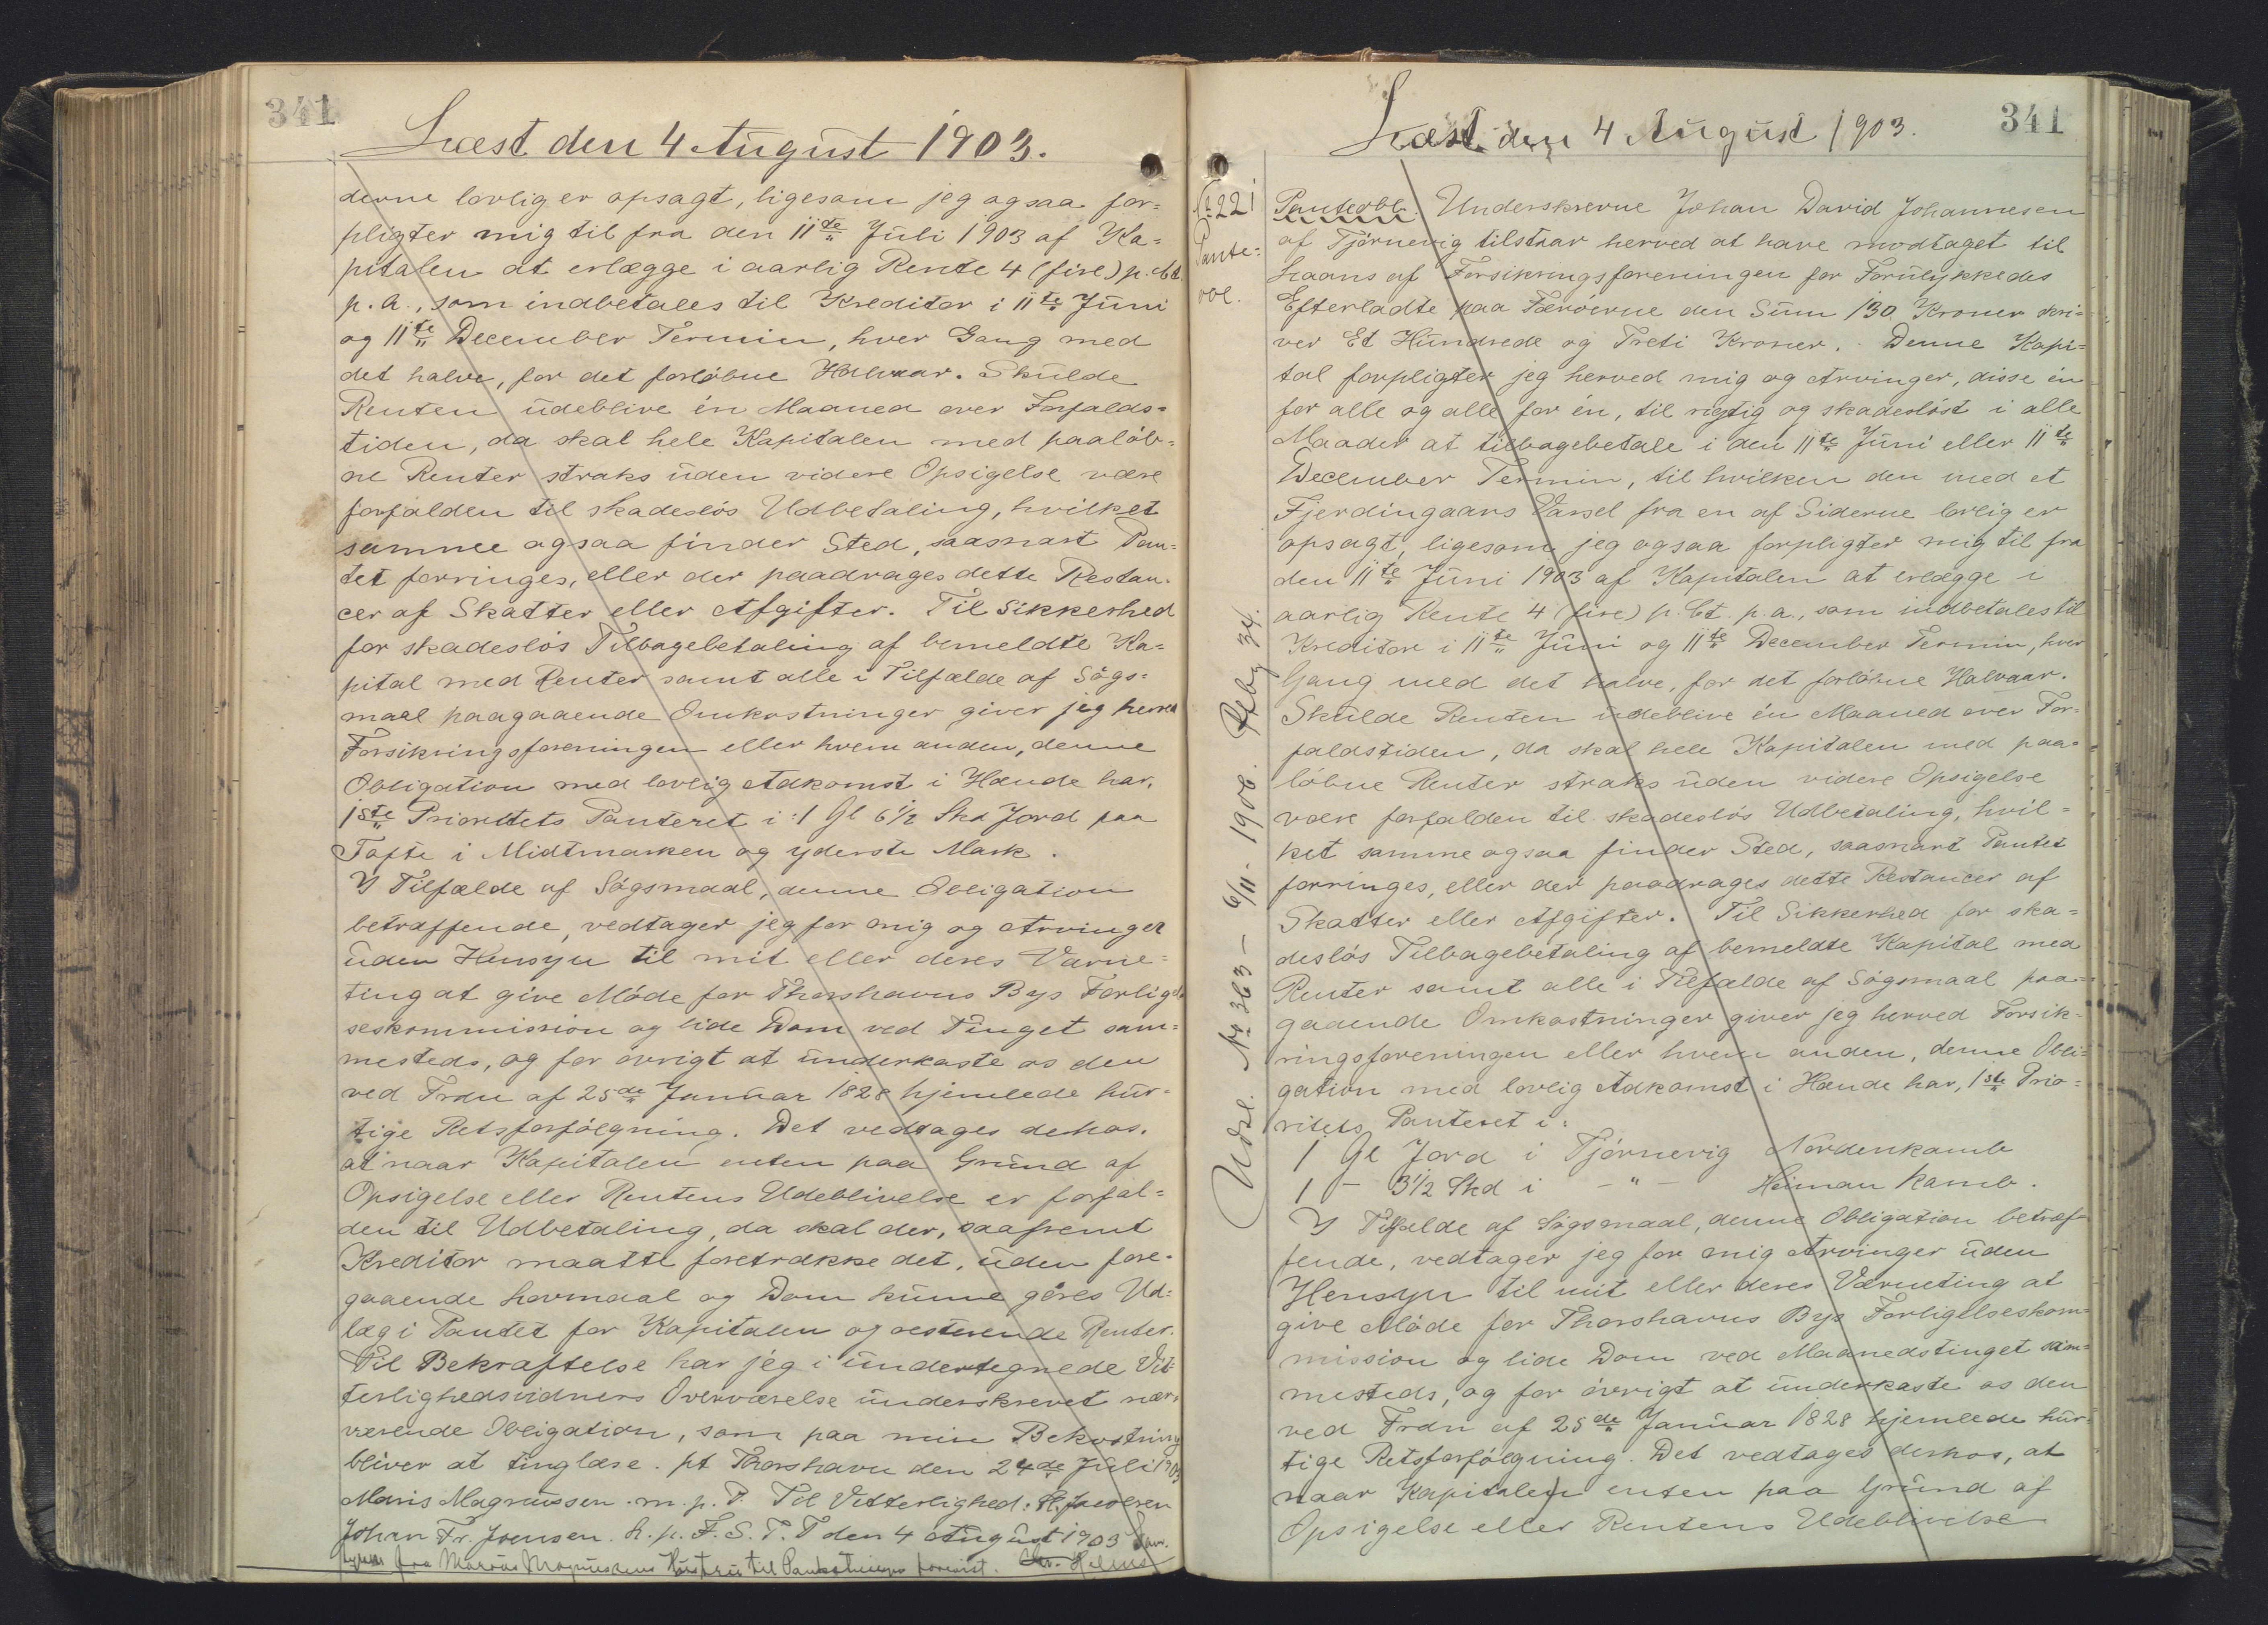 341
Læst den 4 August 1903.
denne lovlig er opsagt, ligesom jeg ogsaa for=
pligter mig til fra den 11te Juli 1903 af Ka=
pitalen at erlægge i aarlig Rente 4 (fire) p. Ct.
p. a., som indbetales til Kreditor i 11te Juni
og 11te December Termin, hver Gang med
det halve, for det forløbne Halvaar. Skulde
Renten udeblive én Maaned over Forfalds=
tiden, da skal hele Kapitalen med paaløb=
ne Renter straks uden videre Opsigelse være
forfalden til skadesløs Udbetaling, hvilket
samme ogsaa finder Sted, saasnart Pan=
tet forringes, eller der paadrages dette Restan=
cer af Skatter eller Afgifter. Til Sikkerhed
for skadesløs Tilbagebetaling af bemeldte Ka=
pital med Renter samt alle i Tilfælde af Søgs=
maal paagaaende Omkostninger giver jeg herved
Forsikringsforeningen eller hvem anden, denne
Obligation med lovlig Adkomst i Hænde har,
1ste Prioritets Panteret i: 1 Gl 6½ Skd Jord paa
Tofte i Midtmarken og yderste Mark.
I Tilfælde af Søgsmaal, denne Obligation
betræffende, vedtager jeg for mig og Arvinger
uden Hensyn til mit eller deres Værne=
ting at give Møde for Thorshavns Bys Forligel=
seskommission og lide Dom ved Tinget sam=
mesteds, og for øvrigt at underkaste os den
ved Frdn af 25de Januar 1828 hjemlede hur=
tige Retsforfølgning. Det vedtages derhos,
at naar Kapitalen enten paa Grund af
Opsigelse eller Rentens Udeblivelse er forfal=
den til Udbetaling, da skal der, saafremt
Kreditor maatte foretrække det, uden fore=
gaaende Lovmaal og Dom kunne gøres Ud=
læg i Pantet for Kapitalen og resterende Renter.
Til Bekræftelse har jeg i undertegnede Vit=
terlighedsvidners Overværelse underskrevet nær=
værende Obligation, som paa min Bekostning
bliver at tinglæse. pt Thorshavn den 24de Juli 1903
Maris Magnussen. m. p. P. Til Vitterlighed: Jacobsen
Johan Fr. Joensen. h. p. F. S. T. T den 4 August 1903
fra Marius Magnussens Hustru til Pantsætningen forevist. Helms
341
Læst den 4 August 1903.
No 221
Pante=
obl.
Panteobl. Underskrevne Johan David Johannesen
af Tjørnevig tilstaar herved at have modtaget til
Laans af Forsikringsforeningen for Forulykkedes
Efterladte paa Færøerne den Sum 130 Kroner skri=
ver Et Hundrede og Treti Kroner. Denne Kapi=
tal forpligter jeg herved mig og Arvinger, disse én
for alle og alle for én, til rigtig og skadesløst i alle
Maader at tilbagebetale i den 11te Juni eller 11te
December Termin, til hvilken den med et
Fjerdingaars Varsel fra en af Siderne lovlig er
opsagt, ligesom jeg ogsaa forpligter mig til fra
den 11te Juni 1903 af Kapitalen at erlægge i
aarlig Rente 4 (fire) p. Ct. p. a., som indbetales til
Kreditor i 11te Juni og 11te December Termin, hver
Gang med det halve, for det forløbne Halvaar.
Skulde Renten udeblive én Maaned over For=
faldstiden, da skal hele Kapitalen med paa=
løbne Renter straks uden videre Opsigelse
være forfalden til skadesløs Udbetaling, hvil=
ket samme ogsaa finder Sted, saasnart Pantet
forringes, eller der paadrages dette Restancer af
Skatter eller Afgifter. Til Sikkerhed for ska=
desløs Tilbagebetaling af bemeldte Kapital med
Renter samt alle i Tilfælde af Søgsmaal paa=
gaaende Omkostninger giver jeg herved Forsik=
ringsforeningen eller hvem anden, denne Obli=
gation med lovlig Adkomst i Hænde har, 1ste Prio=
ritets Panteret i:
1 Gl Jord i Tjørnevig Nordenkamb
1 – 3½ Skd i – " – Heiman Kamb.
I Tilfælde af Søgsmaal, denne Obligation betræf=
fende, vedtager jeg for mig Arvinger uden
Hensyn til mit eller deres Værneting at
give Møde for Thorshavns Bys Forligelseskom=
mission og lide Dom ved Maanedstinget sam=
mesteds, og for øvrigt at underkaste os den
ved Frdn af 25de Januar 1828 hjemlede hur=
tige Retsforfølgning. Det vedtages derhos, at
naar Kapitalen enten paa Grund af
Opsigelse eller Rentens Udeblivelse
Udsl. No 363 – 6/11 – 1906. 34.